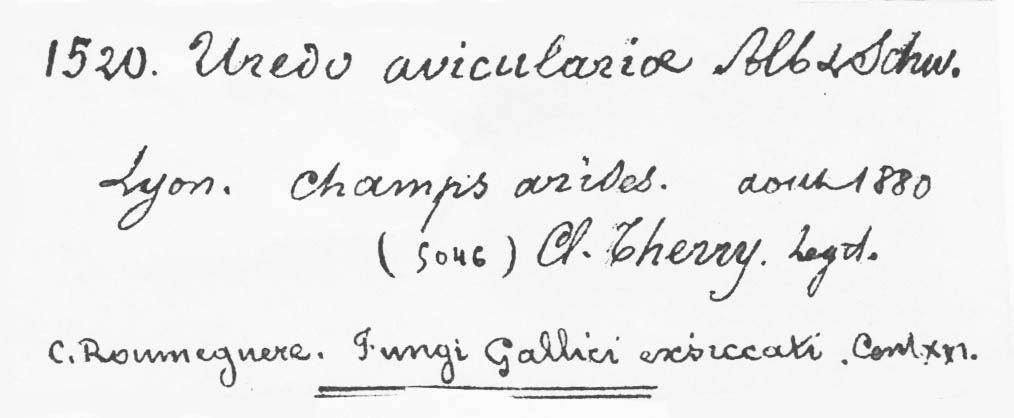 1520. Uredo aviculariæ Alb & Schw.
Lyon. champs arides. aout 1880
(5046) Cl. Therry. Legit.
C. Roumeguere. Fungi Gallici exsiccati. Cent.